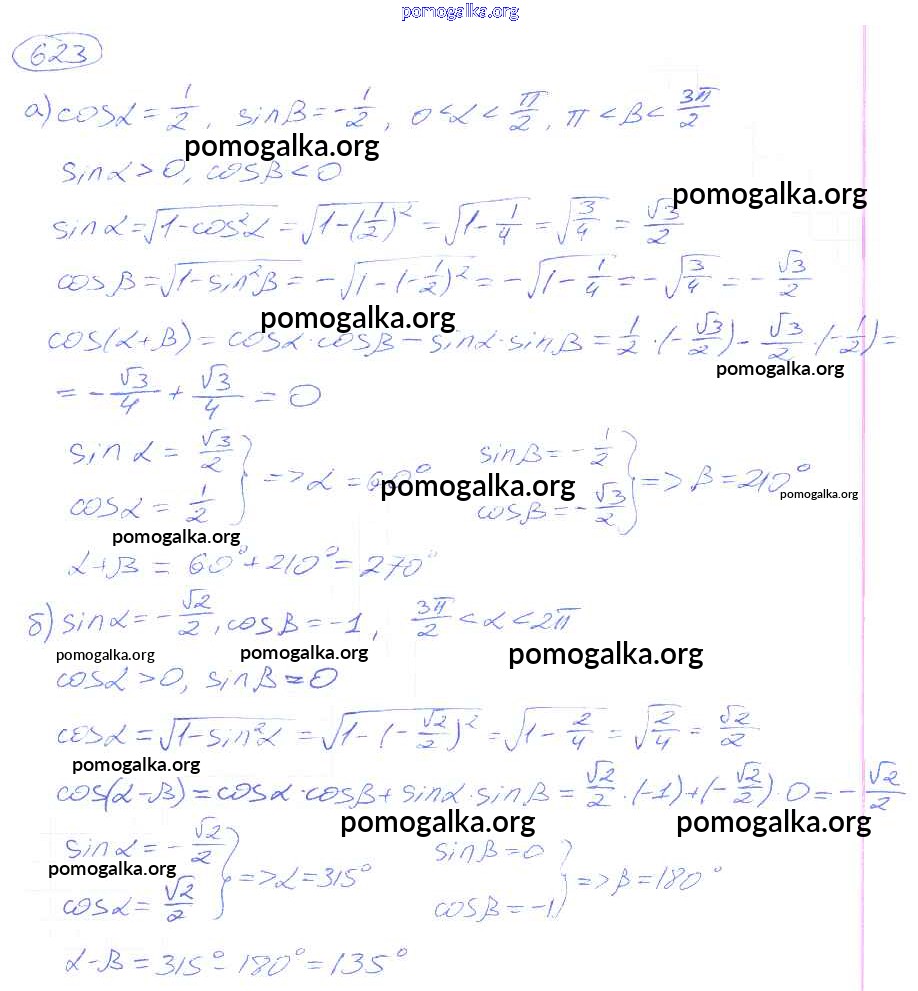 pomogalka.org
623
а) cosα = 1/2, sinβ = -1/2, 0 < α < π/2, π < β < 3π/2
pomogalka.org
sinα > 0, cosβ < 0
pomogalka.org
sinα = √(1-cos²α) = √(1-(1/2)²) = √(1-1/4) = √(3/4) = √3/2
cosβ = √(1-sin²β) = -√(1-(-1/2)²) = -√(1-1/4) = -√(3/4) = -√3/2
pomogalka.org
cos(α+β) = cosα·cosβ - sinα·sinβ = 1/2·(-√3/2) - √3/2·(-1/2) =
pomogalka.org
= -√3/4 + √3/4 = 0
sinα = √3/2 sinβ = -1/2
} => α = 60° } => β = 210°
pomogalka.org pomogalka.org
cosα = 1/2 cosβ = -√3/2
pomogalka.org
α+β = 60°+210° = 270°
б) sinα = -√2/2, cosβ = -1, 3π/2 < α < 2π
pomogalka.org pomogalka.org pomogalka.org
cosα > 0, sinβ = 0
cosα = √(1-sin²α) = √(1-(-√2/2)²) = √(1-2/4) = √(2/4) = √2/2
pomogalka.org
cos(α-β) = cosα·cosβ + sinα·sinβ = √2/2·(-1)+(-√2/2)·0 = -√2/2
pomogalka.org pomogalka.org
sinα = -√2/2 sinβ = 0
pomogalka.org
} => α = 315° } => β = 180°
cosα = √2/2 cosβ = -1
α-β = 315° - 180° = 135°